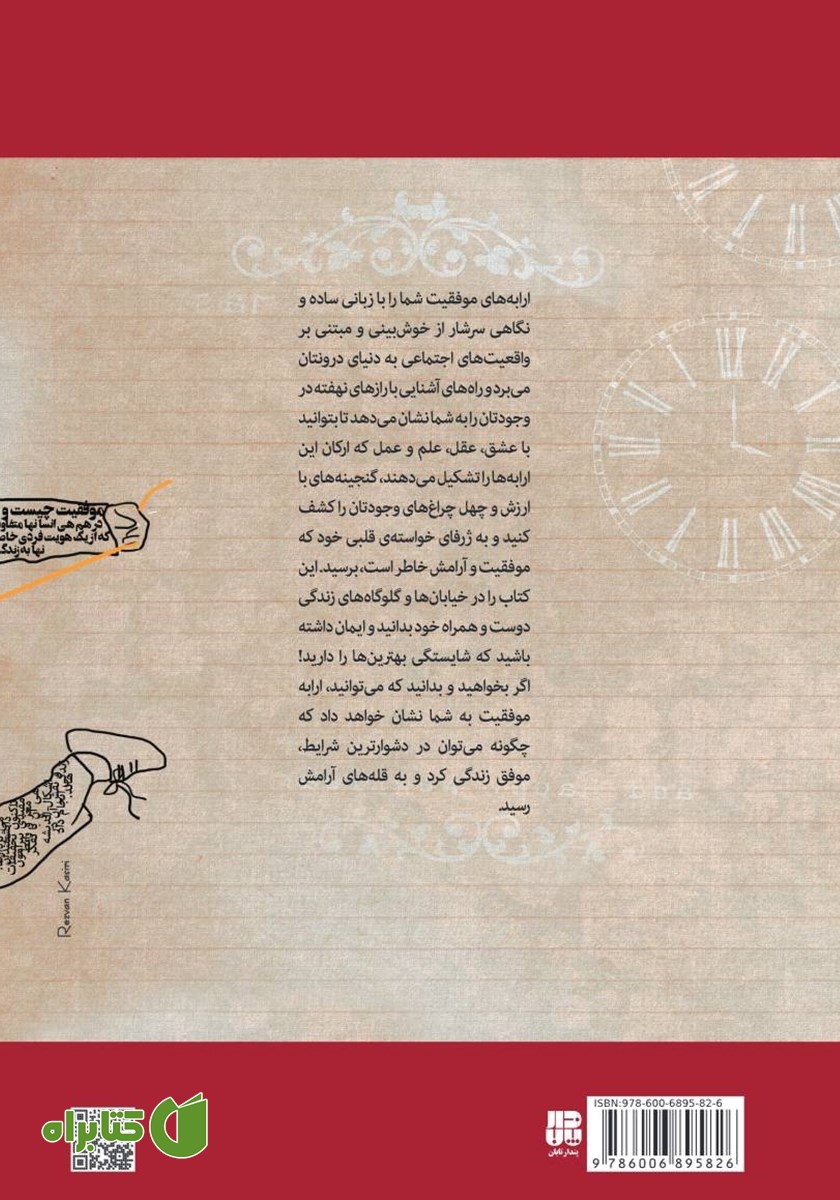 ارابه‌های موفقیت شما را با زبانی ساده و
نگاهی سرشار از خوش‌بینی و مبتنی بر
واقعیت‌های اجتماعی به دنیای درونتان
می‌برد و راه‌های آشنایی با رازهای نهفته در
وجودتان را به شما نشان می‌دهد تا بتوانید
با عشق، عقل، علم و عمل که ارکان این
ارابه‌ها را تشکیل می‌دهند، گنجینه‌های با
ارزش و چهل چراغ‌های وجودتان را کشف
کنید و به ژرفای خواسته‌ی قلبی خود که
موفقیت و آرامش خاطر است، برسید. این
کتاب را در خیابان‌ها و گلوگاه‌های زندگی
دوست و همراه خود بدانید و ایمان داشته
باشید که شایستگی بهترین‌ها را دارید!
اگر بخواهید و بدانید که می‌توانید، ارابه
موفقیت به شما نشان خواهد داد که
چگونه می‌توان در دشوارترین شرایط،
موفق زندگی کرد و به قله‌های آرامش
رسید.
موفقیت چیست و
که از یک هویت فردی
Rezvan Kasiri
کتابراه
پندار تابان
ISBN:978-600-6895-82-6
9 786006 895826